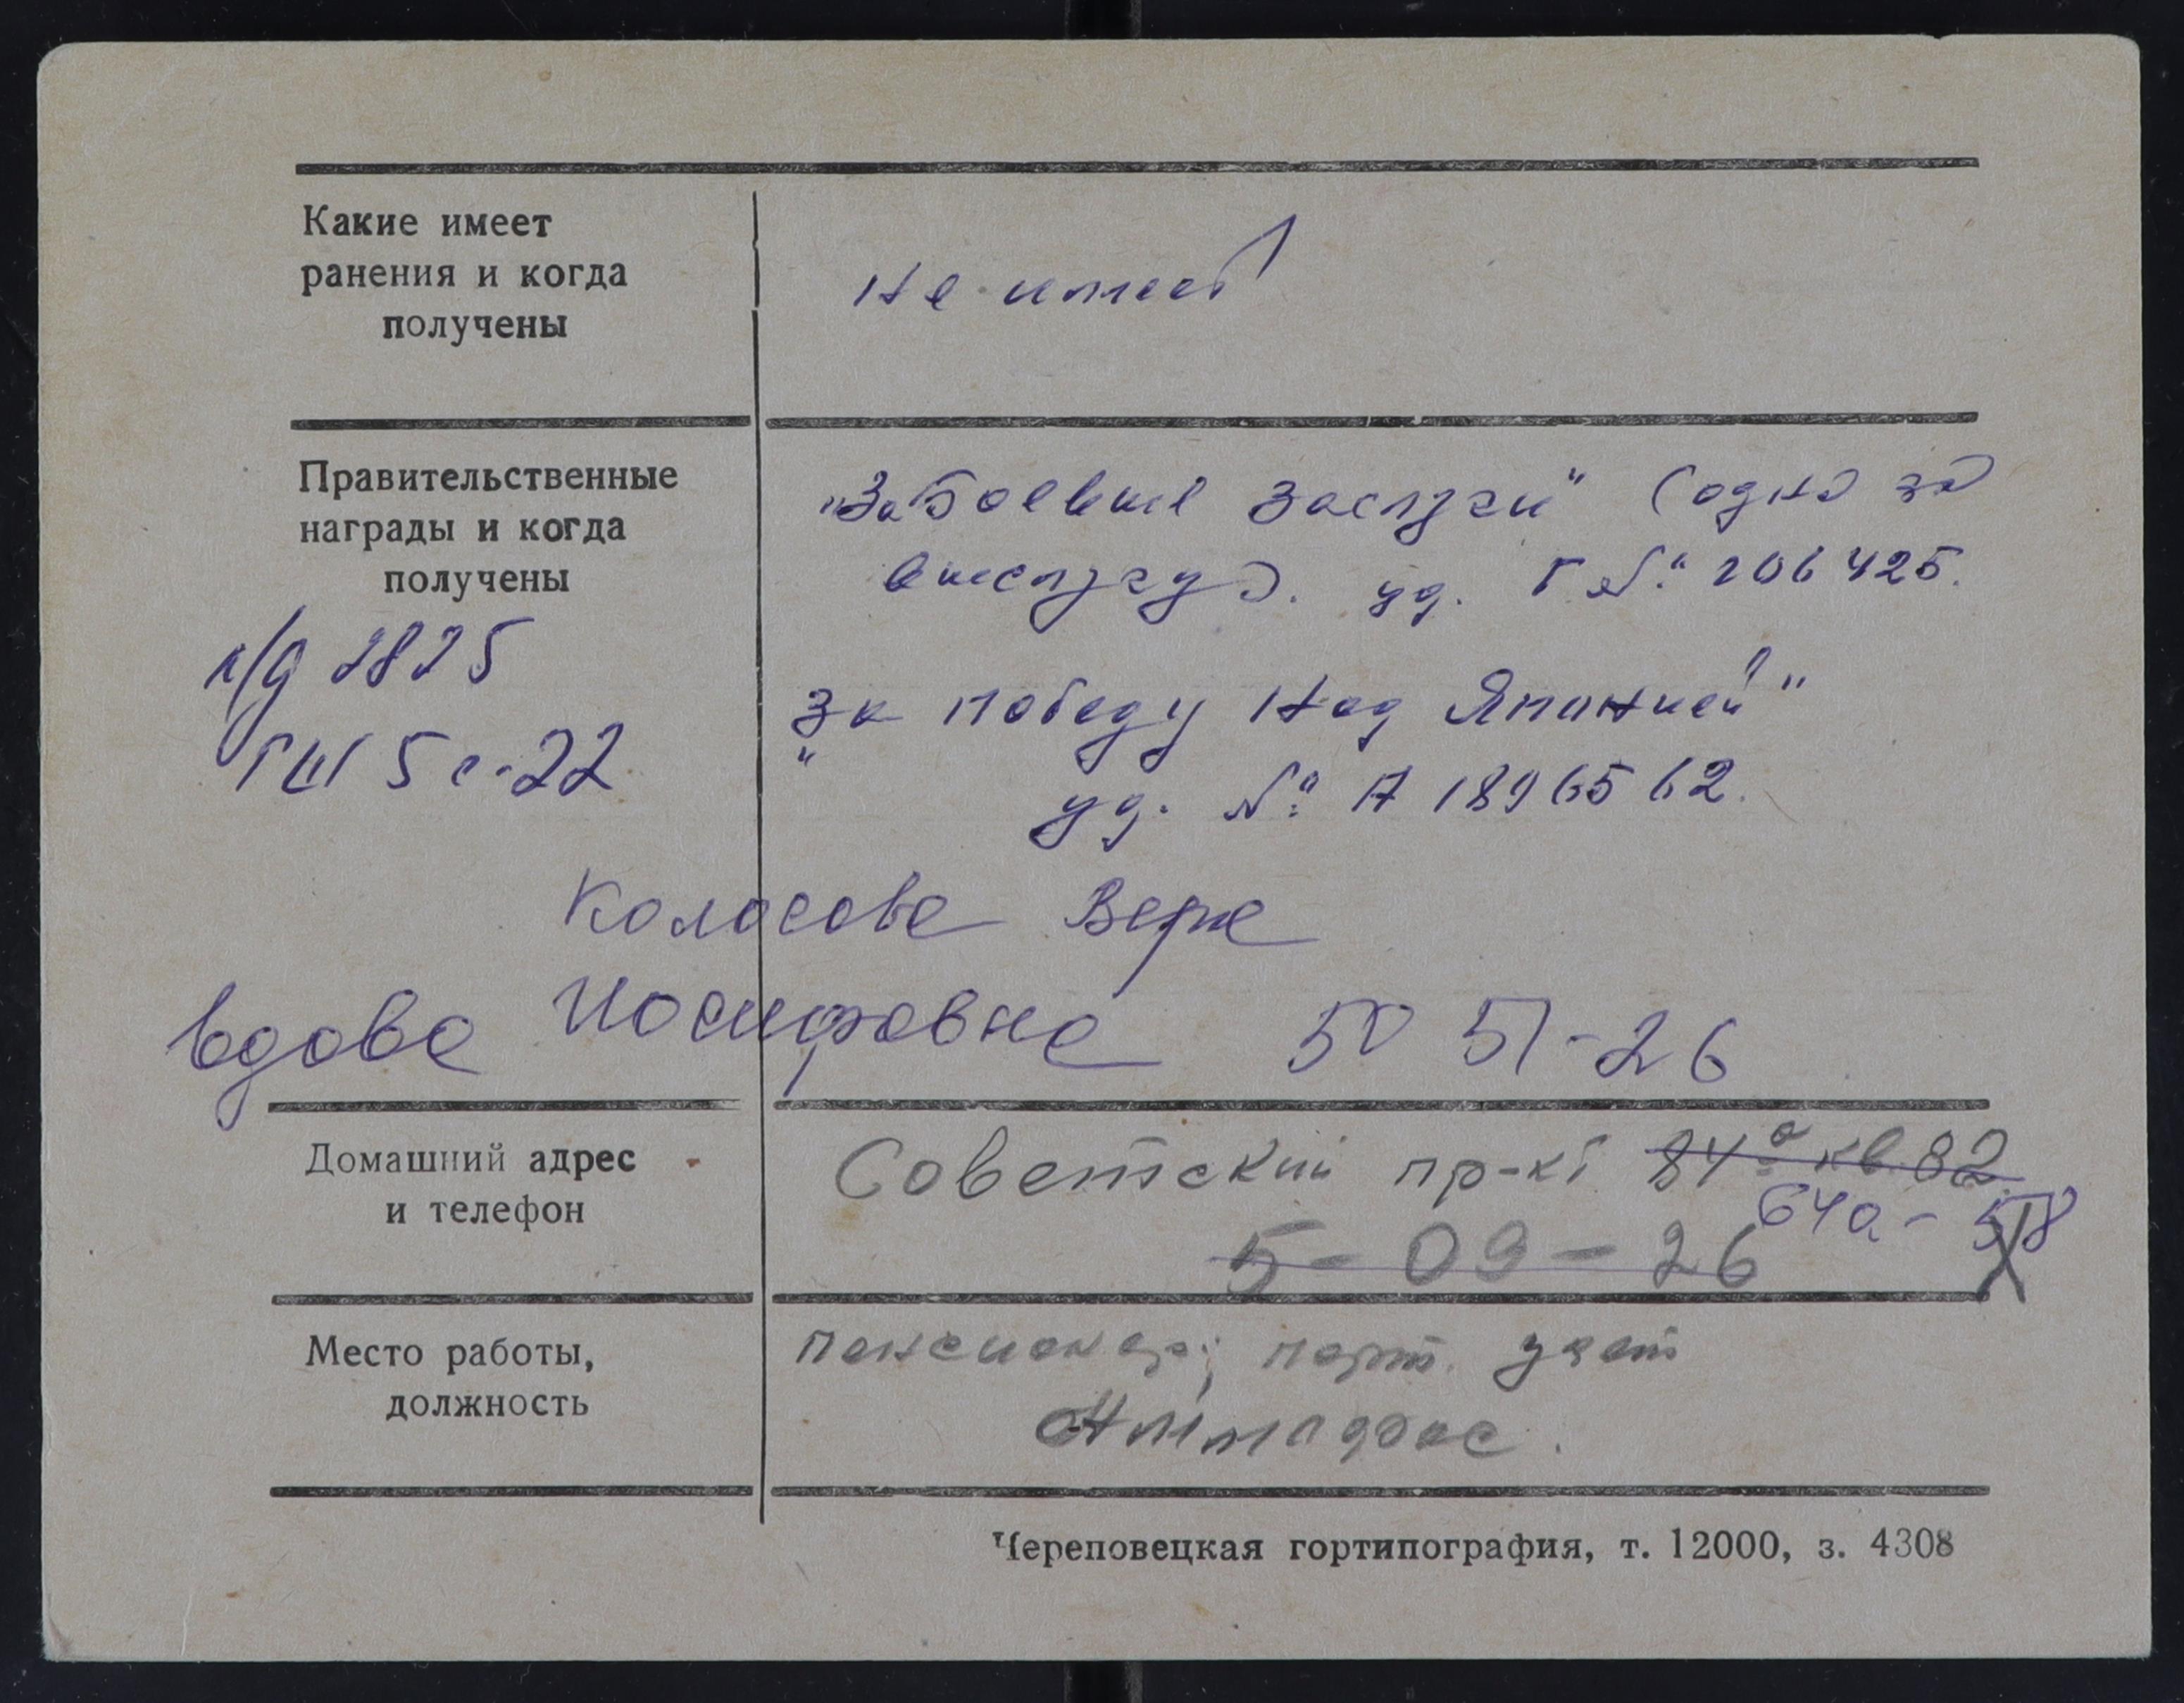 Какие имеет
ранения и когда
получены
не имеет
Правительственные
награды и когда
получены
"За боевые заслуги" (одна за
выслугу). уд. Г №: 206425.
п/д 2825
ГШ 5 с-22
"За победу над Японией"
уд. №: А 1896562.
Колосова Вера
вдова Иосифовна 50 51-26
Домашний адрес
и телефон
Советский пр-кт 84а кв. 82
64а - 58
5-09-26
Место работы,
должность
пенсионер; парт. учет
Череповецкая гортипография, т. 12000, з. 4308